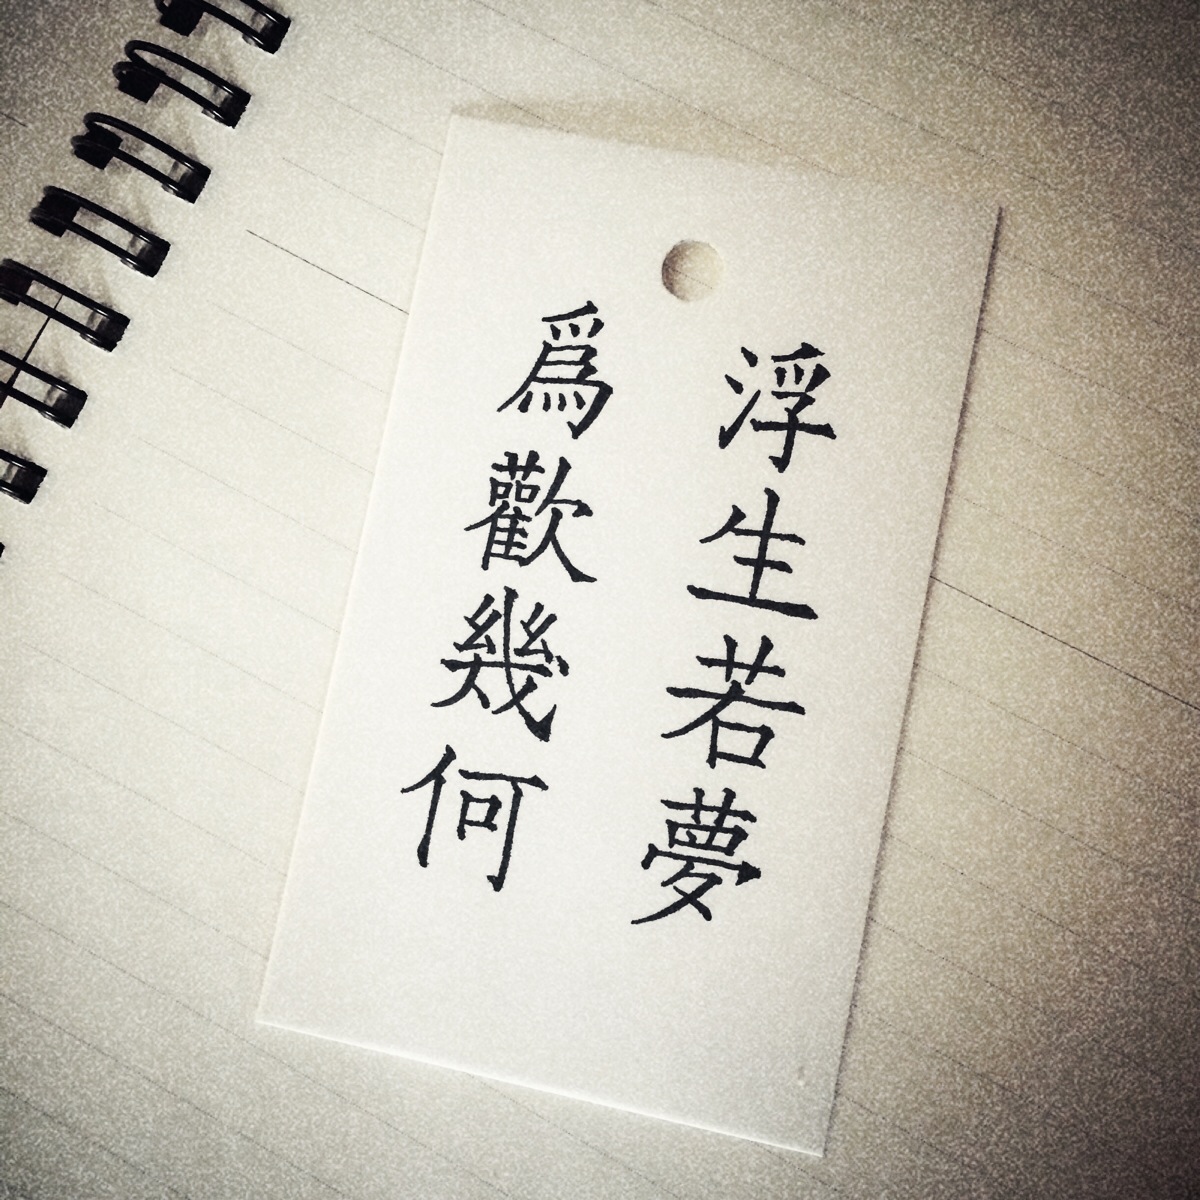 浮生若夢
爲歡幾何